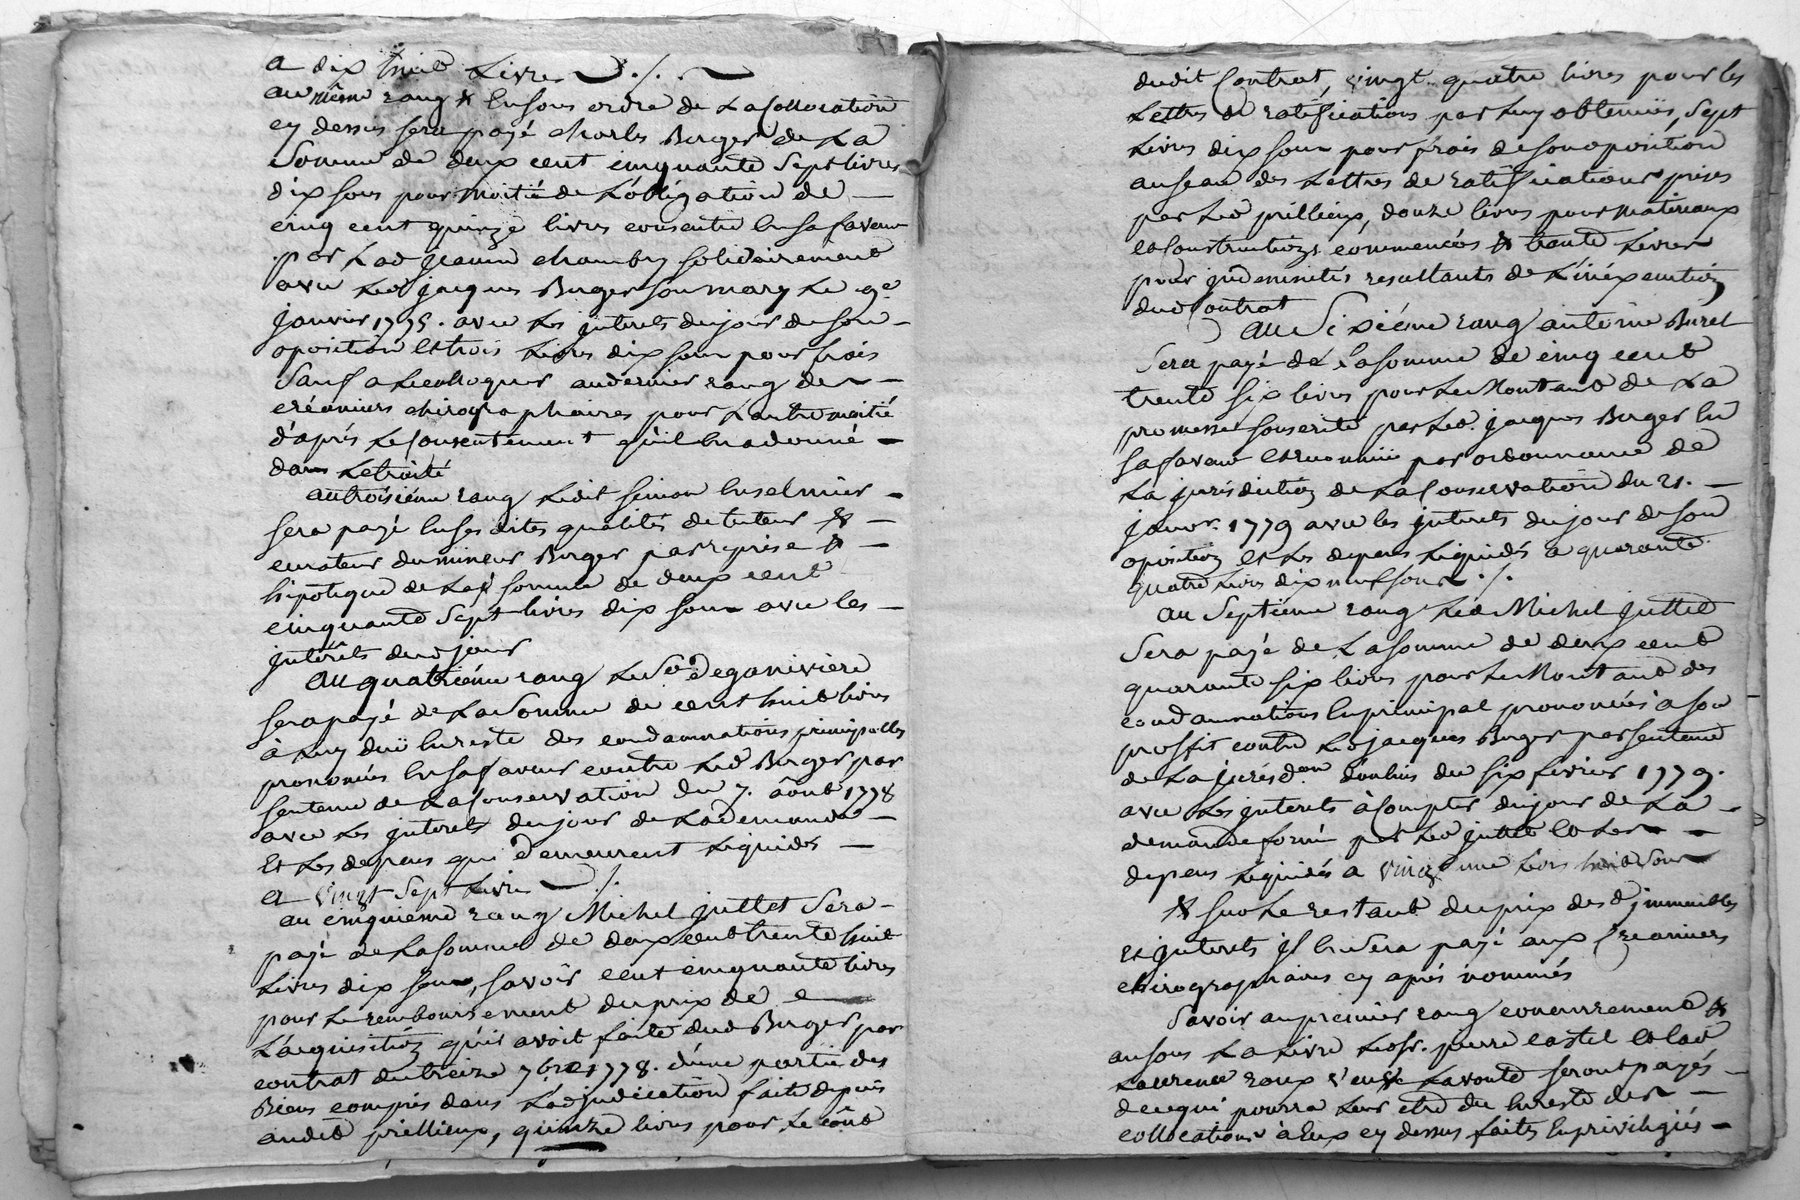 a dix huit Livres ./.
au même rang & en sous ordre de La Collocation
cy dessus sera payé charles Burger de La
Somme de deux cent cinquante Sept livres
dix sous pour Moitié de L'obligation de
cinq cent quinze livres consentie en sa faveur
par Lad Jeanne chamby solidairement
avec Led jacques Burger son mary Le 9e
janvier 1775. avec Les interets du jour de son
oposition et trois Livres dix sous pour frais
Sauf a Le colloquer au dernier rang des
créanciers chirographaires pour L'autre moitié
d'après Le Consentement qu'il en a donné
dans Le traité
au troisiéme rang Ledit simon
sera payé en ses dites qualités de tuteur &
curateur du mineur Burger par reprise &
hipoteque de Lad somme de deux cent
cinquante Sept livres dix sous avec les
intérêts dud jour
au quatriéme rang Le Sr Deganiviere
sera payé de La Somme de cent huit livres
à Luy düe en reste des condamnations principalles
prononcées en sa faveur contre Led Burger par
sentence de La Conservation du 7. août 1778
avec Les interets du jour de La demande
Et Les depens qui demeurent Liquidés
a vingt Sept Livres ./.
au cinquieme rang Michel juttet Sera
payé de La somme de deux cent trente huit
Livres dix sous, savoir cent cinquante livres
pour Le remboursement du prix de
L'acquisition qu'il avoit faite dud Burger par
contrat du treize 7bre 1778. d'une partie des
Biens compris dans L'adjudication faite depuis
audit prillieux, quinze livres pour Le coût
dudit Contrat, vingt quatre livres pour les
Lettres de ratifications par Luy obtenües, Sept
Livres dix sous pour frais de son oposition
au seau des Lettres de ratification prises
par Led prillieux, douze livres pour materiaux
et Constructions commencés & trente Livres
pour indemnités resultants de L'inéxecution
dud Contrat
au Sixiéme rang antoine Burel
Sera payé de La somme de cinq cent
trente six livres pour Le Montant de La
promesse souscrite par Led. jacques Burger en
sa faveur et reconnüe par ordonnance de
La jurisdiction de La Conservation du 21.
janvr. 1779 avec les interets du jour de son
oposition et Les depens Liquidés a quarante
quatre Livres dix neuf sous ./.
au Septiéme rang Led Michel juttet
Sera payé de La somme de deux cent
quarante six livres pour Le Montant des
condamnations en principal prononcées à son
proffit contre Led jacques Burger par sentence
de La jurisdon d'oulins du six fevrier 1779.
avec Les interets à Compter du jour de La
demande formée par Led juttet et Les
depens Liquidés a vingt une Livres huit Sous
& sur Le restant du prix des d immeubles
et interets il en Sera payé aux Creanciers
chirographaires cy après nommés
Savoir au premier rang concurremment &
au sous La Livre Led sr. pierre castel et Lad
Laurence roux veuve Lavoute seront payés
de ce qui pourra Leur etre du en reste des
collocations à Eux cy dessus faites en privilegiés